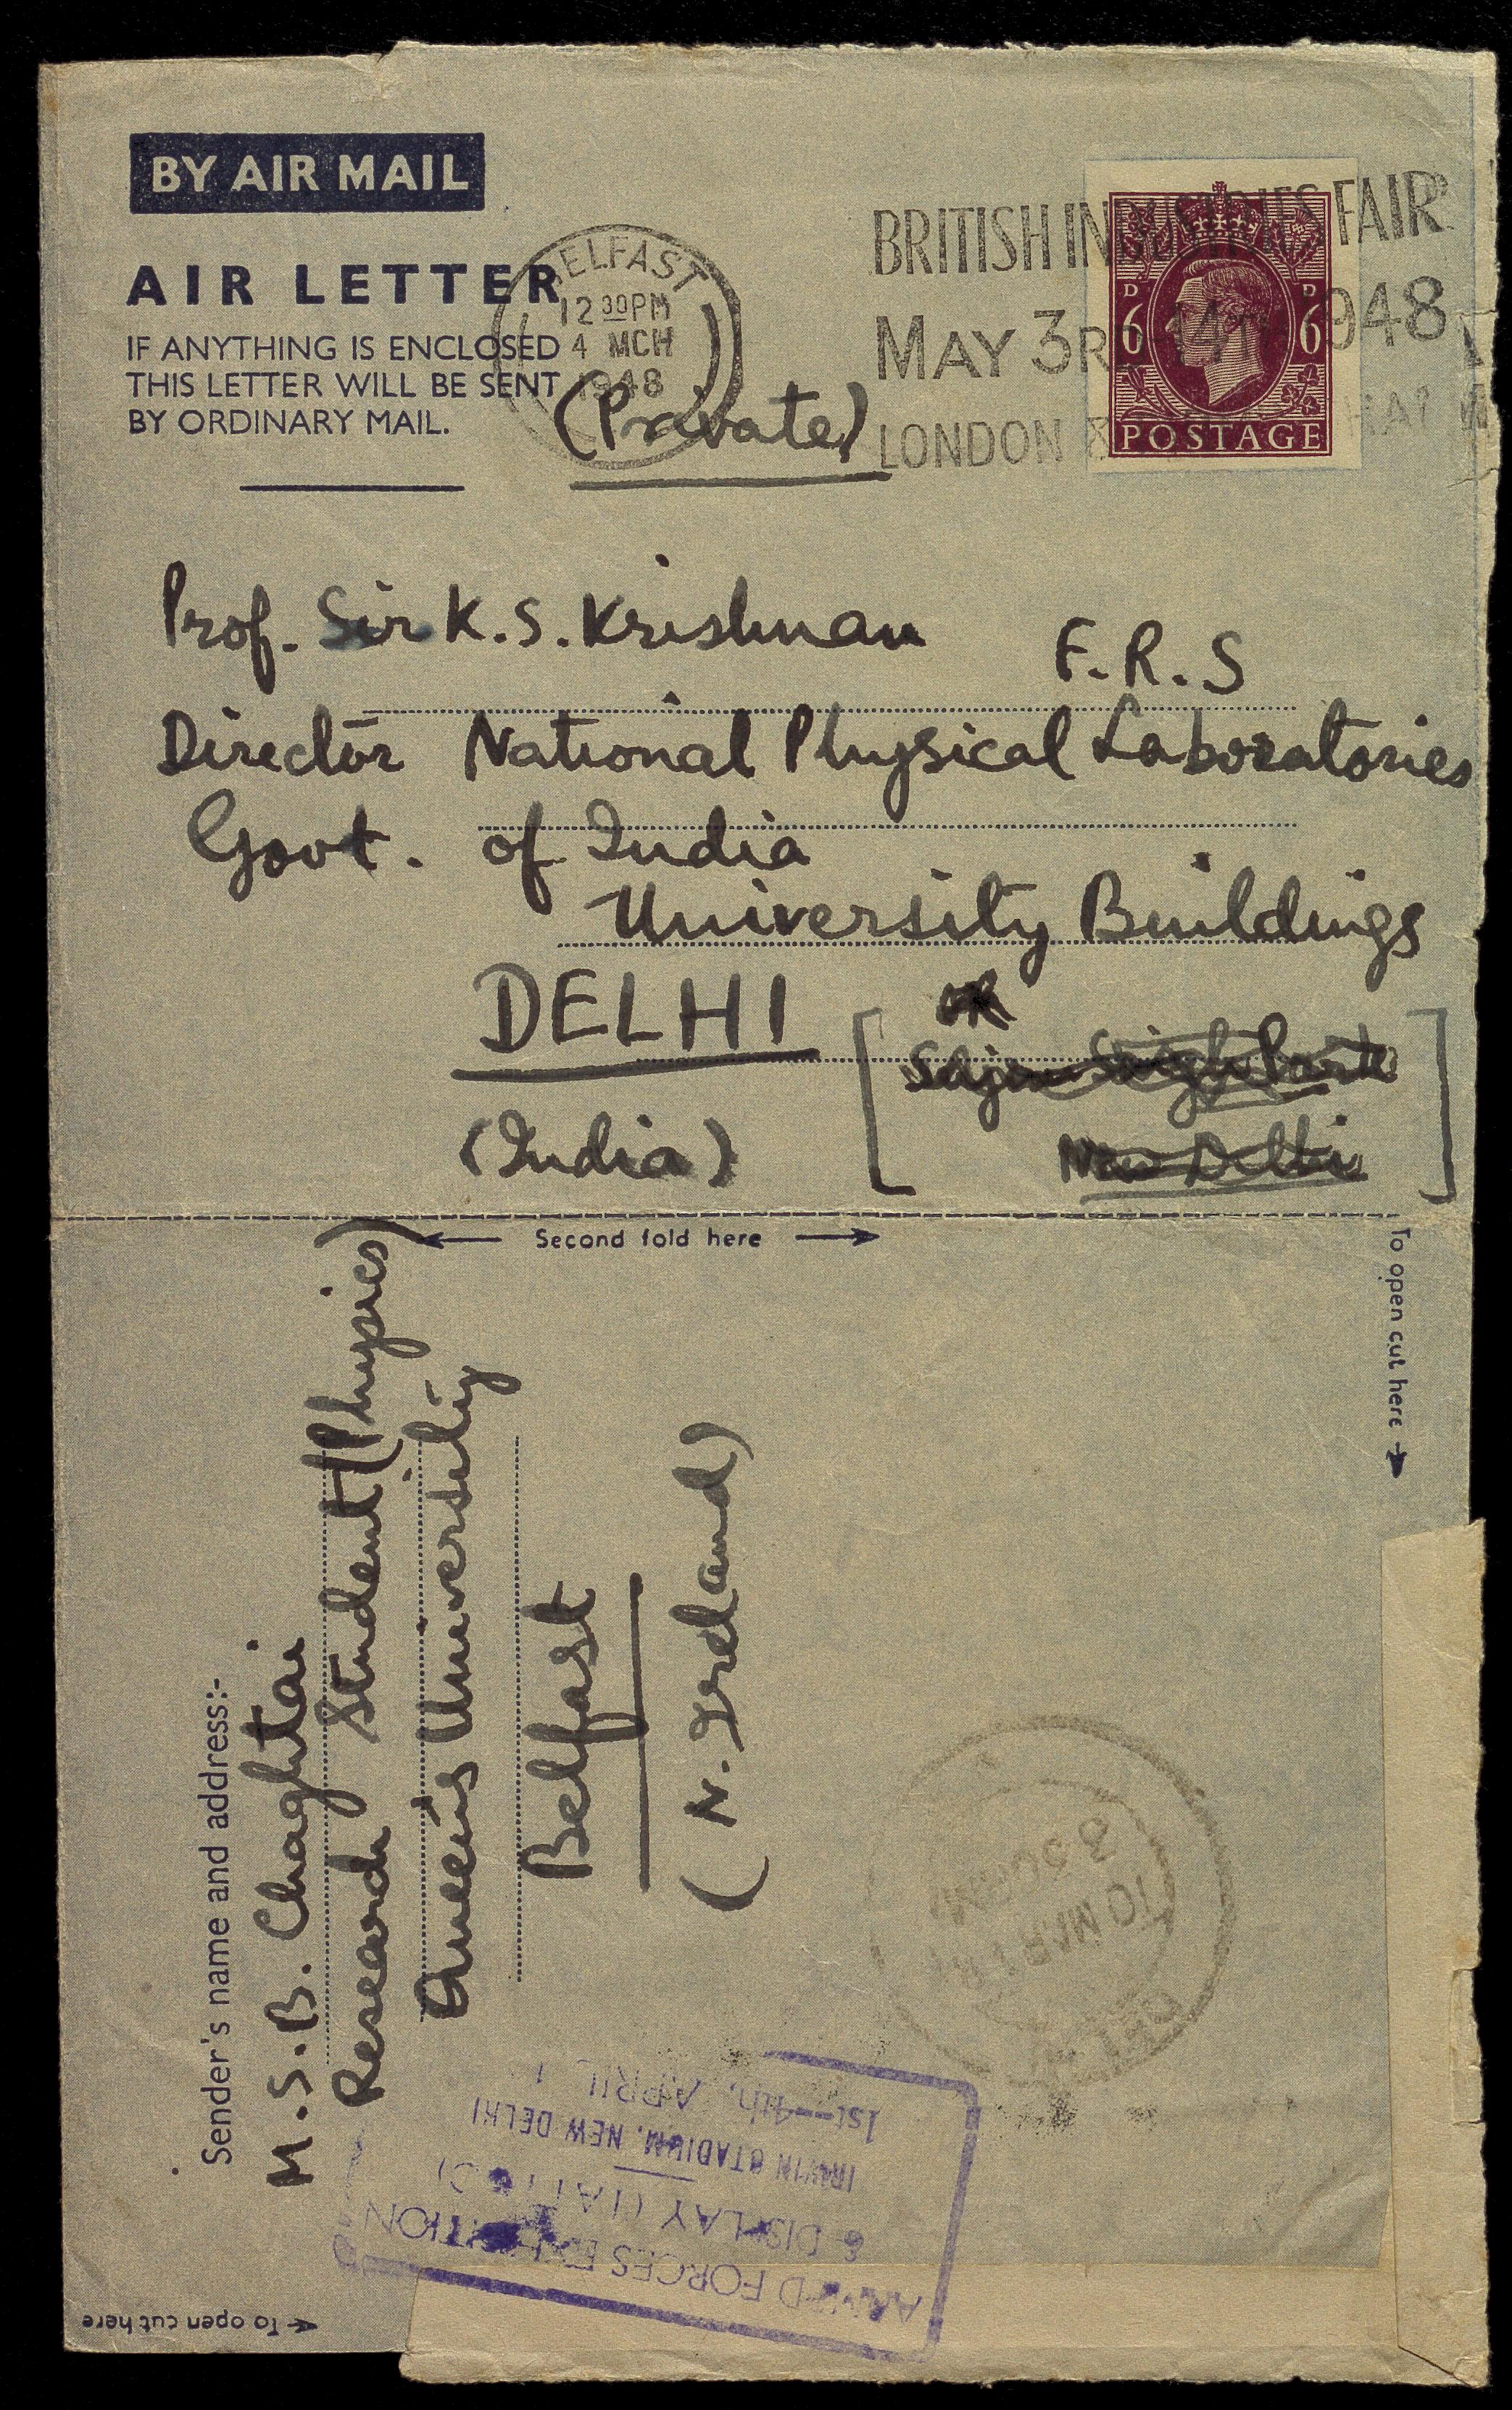 BY AIR MAIL
AIR LETTER
IF ANYTHING IS ENCLOSED
THIS LETTER WILL BE SENT
BY ORDINARY MAIL.
BELFAST
12 30PM
4 MCH
1948
BRITISH INDUSTRIES FAIR
MAY 3RD 14TH 1948
LONDON &
D D
6 6
POSTAGE
(Private)
Prof. Sir K. S. Krishnan F.R.S
Director National Physical Laboratories
Govt. of India
University Buildings
DELHI
(India)
OR
New Delhi
Second fold here
To open cut here
Sender's name and address:-
M.S.B. Chaghtai
Research Student (Physics)
Queen's University
Belfast
(N. Ireland)
8 30PM
10 MAR
DELHI
ARMED FORCES EXHIBITION
& DISPLAY (TATTOO)
IRWIN STADIUM, NEW DELHI
1st—4th, APRIL
To open cut here